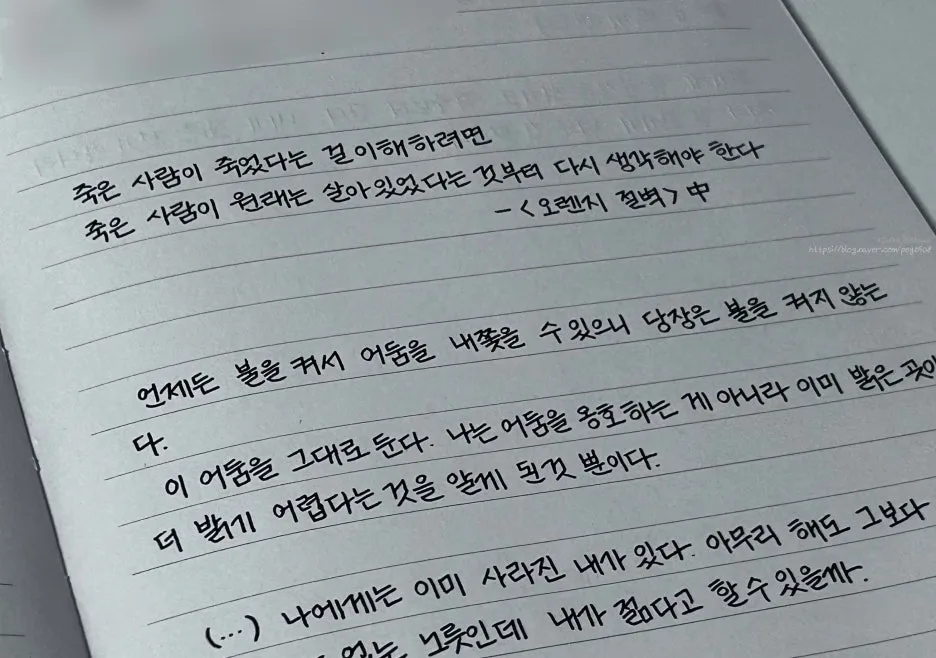 죽은 사람이 죽었다는 걸 이해하려면
죽은 사람이 원래는 살아있었다는 것부터 다시 생각해야 한다
- <오렌지 절벽> 中
언제든 불을 켜서 어둠을 내쫓을 수 있으니 당장은 불을 켜지 않는
다.
이 어둠을 그대로 둔다. 나는 어둠을 옹호하는 게 아니라 이미 밝은 곳이
더 밝기 어렵다는 것을 알게 된것 뿐이다.
(...) 나에게는 이미 사라진 내가 있다. 아무리 해도 그보다
없는 노릇인데 내가 젊다고 할 수 있을까.